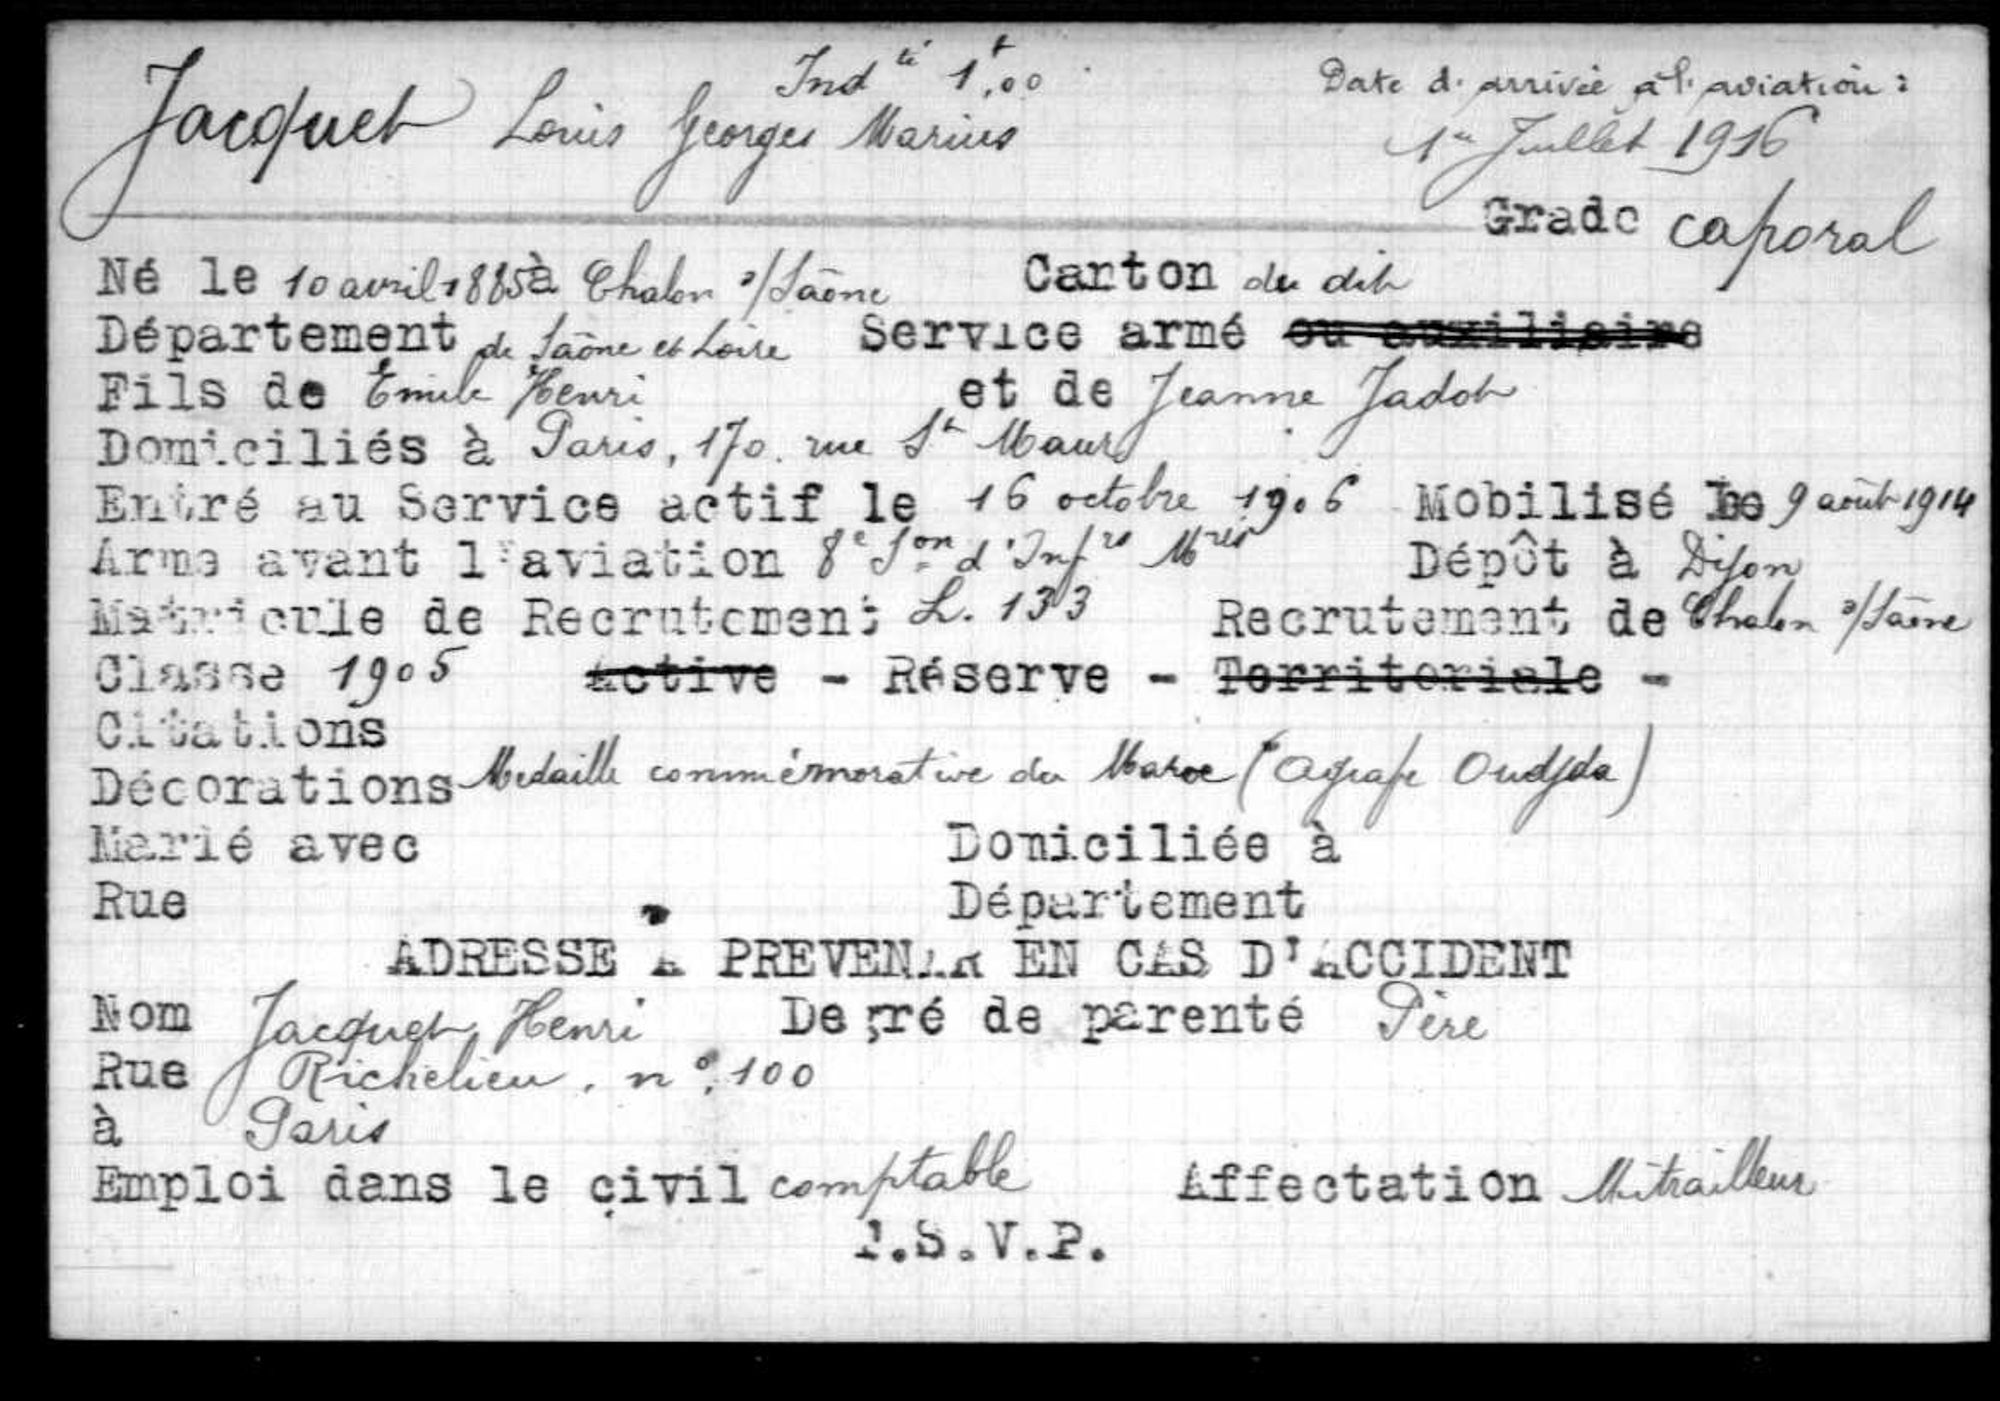 Ind té 1f,00
Date d'arrivée à l'aviation :
Jacquet Louis Georges Marius
1er Juillet 1916
Grade caporal
Né le 10 avril 1885 à Chalon s/Saône Carton du dit
Département de Saône et Loire Service armé ou auxiliaire
Fils de Emile Henri et de Jeanne Jadot
Domiciliés à Paris, 170 rue St Maur
Entré au Service actif le 16 octobre 1906 Mobilisé le 9 août 1914
Arme avant l'aviation 8e Son d'Infrs Mres Dépôt à Dijon
Matricule de Recrutement L. 133 Recrutement de Chalon s/Saône
Classe 1905 Active - Réserve - Territoriale -
Citations
Décorations Medaille commémorative du Maroc (Agrafe Oudjda)
Marié avec Domiciliée à
Rue Département
ADRESSE A PREVENIR EN CAS D'ACCIDENT
Nom Jacquet Henri Degré de parenté Père
Rue Richelieu, n° 100
à Paris
Emploi dans le civil comptable Affectation Mitrailleur
T.S.V.P.